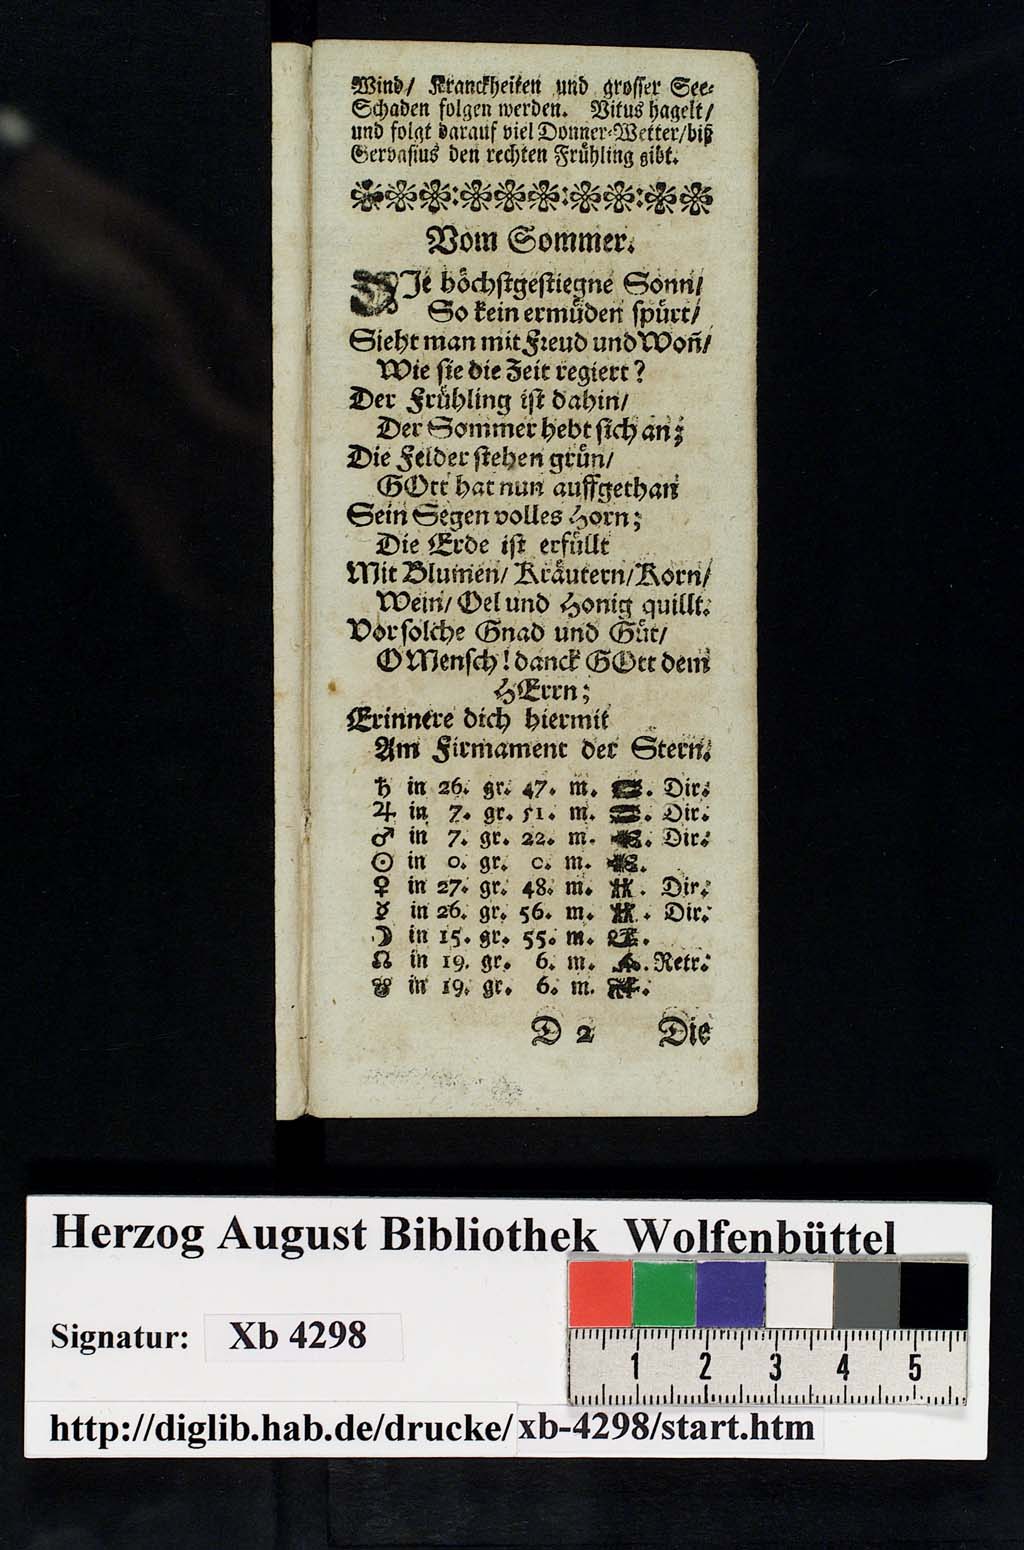 Wind/ Kranckheiten und grosser See-
Schaden folgen werden. Vitus hagelt/
und folgt darauf viel Donner-Wetter/biß
Gervasius den rechten Frühling gibt.
Vom Sommer.
DIe höchstgestiegne Sonn/
So kein ermüden spürt/
Sieht man mit Freud und Woñ/
Wie sie die Zeit regiert?
Der Frühling ist dahin/
Der Sommer hebt sich an;
Die Felder stehen grün/
GOtt hat nun auffgethan
Sein Segen volles Horn;
Die Erde ist erfüllt
Mit Blumen/ Kräutern/Korn/
Wein/ Oel und Honig quillt.
Vor solche Gnad und Güt/
O Mensch! danck GOtt dem
HErrn;
Erinnere dich hiermit
Am Firmament der Stern.
♄ in 26. gr. 47. m. Dir.
♃ in 7. gr. 51. m. Dir.
♂ in 7. gr. 22. m. Dir.
☉ in 0. gr. 0. m.
♀ in 27. gr. 48. m. Dir.
☿ in 26. gr. 56. m. Dir.
☽ in 15. gr. 55. m.
☊ in 19. gr. 6. m. Retr.
☋ in 19. gr. 6. m.
D 2 Die
Herzog August Bibliothek Wolfenbüttel
Signatur: Xb 4298
1 2 3 4 5
http://diglib.hab.de/drucke/xb-4298/start.htm